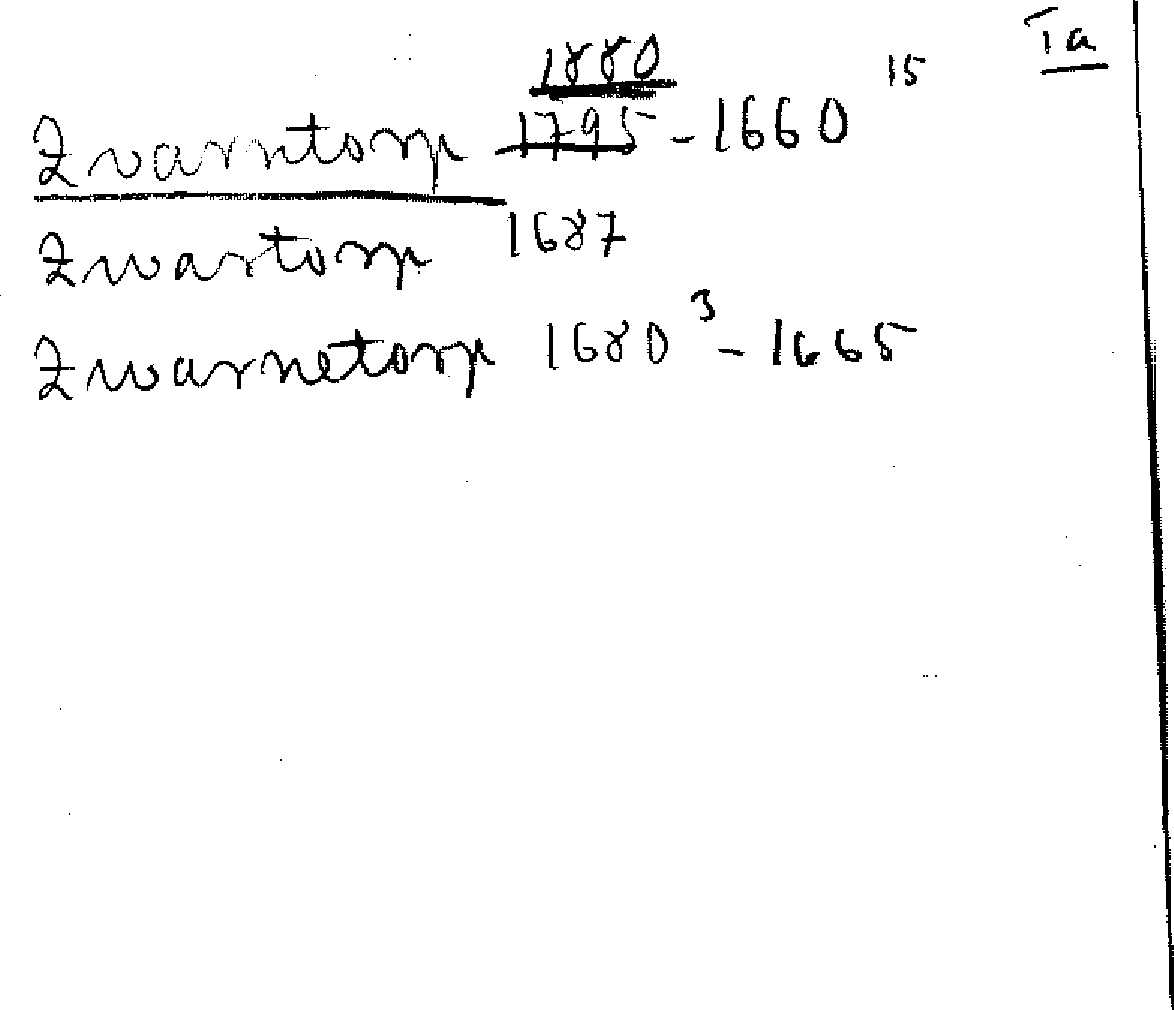 Ia
1880
15
Qvarntorp 1795 - 1660
Qwartorp 1687
Qwarnetorp 1680³ - 1665